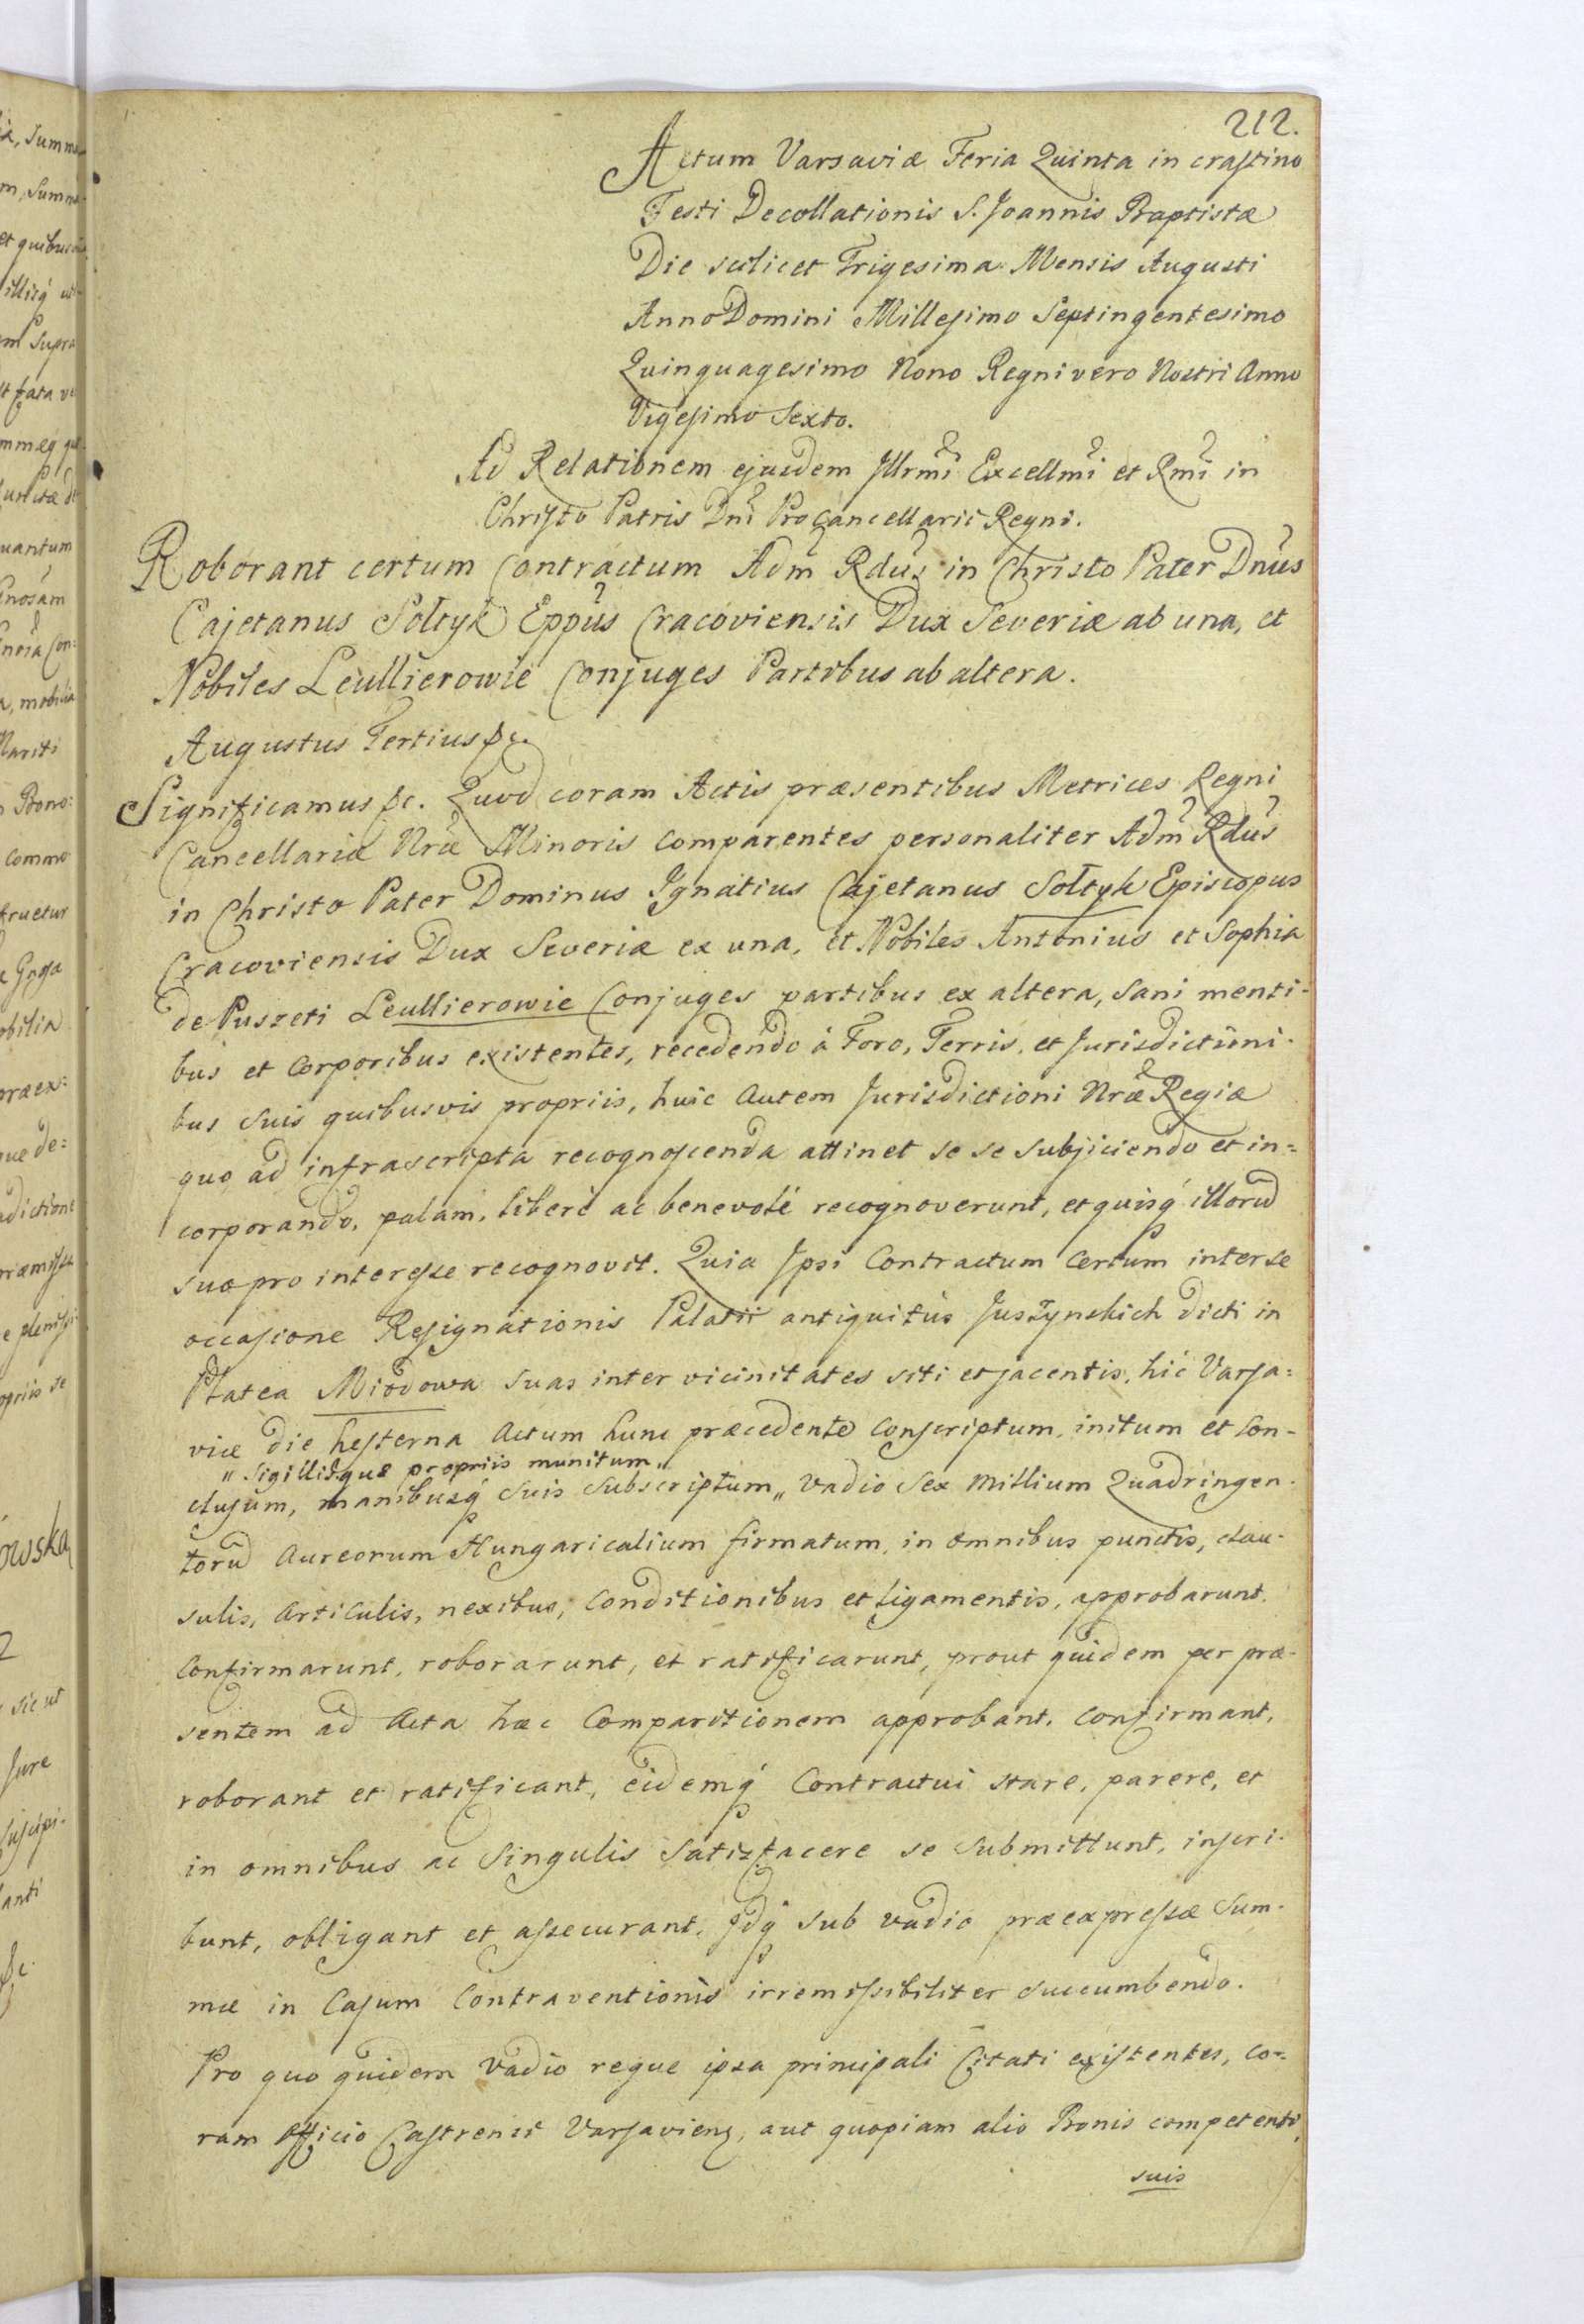 212.
Actum Varsaviæ Feria Quinta in crastino
Festi Decollationis S. Joannis Baptistæ
Die scilicet Trigesima Mensis Augusti
Anno Domini Millesimo Septingentesimo
Quinquagesimo Nono Regni vero Nostri Anno
Vigesimo Sexto.
Ad Relationem ejusdem Illrmi Excellmi et Rmi in
Christo Patris Dni Procancellarii Regni.
Roborant certum Contractum Adm Rdus in Christo Pater Dnus
Cajetanus Sołtyk Eppus Cracoviensis Dux Severiæ ab una, et
Nobiles Leullierowie Conjuges Partibus ab altera.
Augustus Tertius &c.
Significamus &c. Quod coram Actis præsentibus Metrices Regni
Cancellariæ Nræ Minoris comparentes personaliter Adm Rdus
in Christo Pater Dominus Ignatius Cajetanus Sołtyk Episcopus
Cracoviensis Dux Severiæ ex una, et Nobiles Antonius et Sophia
de Puszeti Leullierowie Conjuges partibus ex altera, sani menti-
bus et corporibus existentes, recedendo à Foro, Terris, et Jurisdictioni-
bus suis quibusvis propriis, huic autem Jurisdictioni Nræ Regiæ
quo ad infrascripta recognoscenda attinet se se subjiciendo et in=
corporando, palam, liberè ac benevolè recognoverunt, et quisq́ illorũ
suo pro interesse recognovit. Quia Ipsi Contractum certum inter se
occasione Resignationis Palatii antiquitùs Juszynskich dicti in
Platea Miodowa suas inter vicinitates siti et jacentis, hic Varsa=
viæ die hesterna Actum hunc præcedente conscriptum, initum et con-
„ Sigillisque propriis munitum „
clusum, manibusq́ suis subscriptum „ vadio Sex Millium Quadringen-
torũ Aureorum Hungaricalium firmatum, in omnibus punctis, clau-
sulis, articulis, nexibus, conditionibus et ligamentis, approbarunt,
confirmarunt, roborarunt, et ratificarunt, prout quidem per præ-
sentem ad Acta hæc Comparitionem approbant, confirmant,
roborant et ratificant, eidemq́ Contractui stare, parere, et
in omnibus ac singulis satisfacere se submittunt, inscri-
bunt, obligant et assecurant. Idq́ sub vadio præexpressæ Sum-
mæ in Casum Contraventionis irremissibiliter succumbendo.
Pro quo quidem vadio reque ipsa principali Citati existentes, co-
ram Officio Castrensi Varsaviens, aut quopiam alio Bonis competenti,
suis